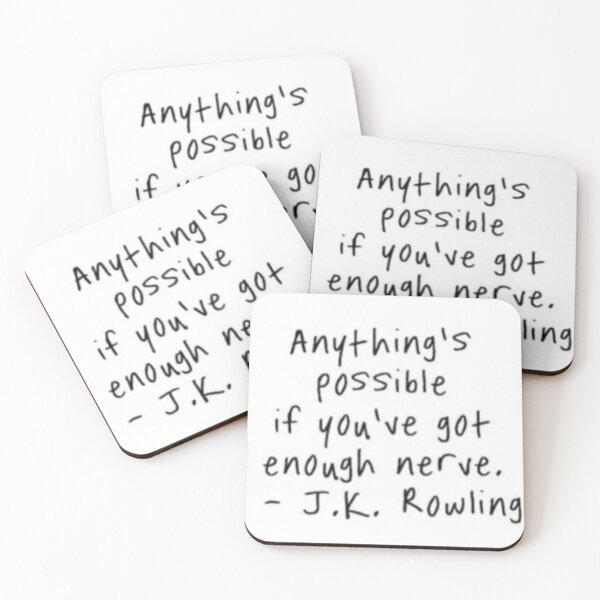 Anything's
possible
if
Anything's
possible
if you've got
enough nerve.
Anything's
possible
if you've got
enough
- J.K.
Anything's
possible
if you've got
enough nerve.
- J.K. Rowling